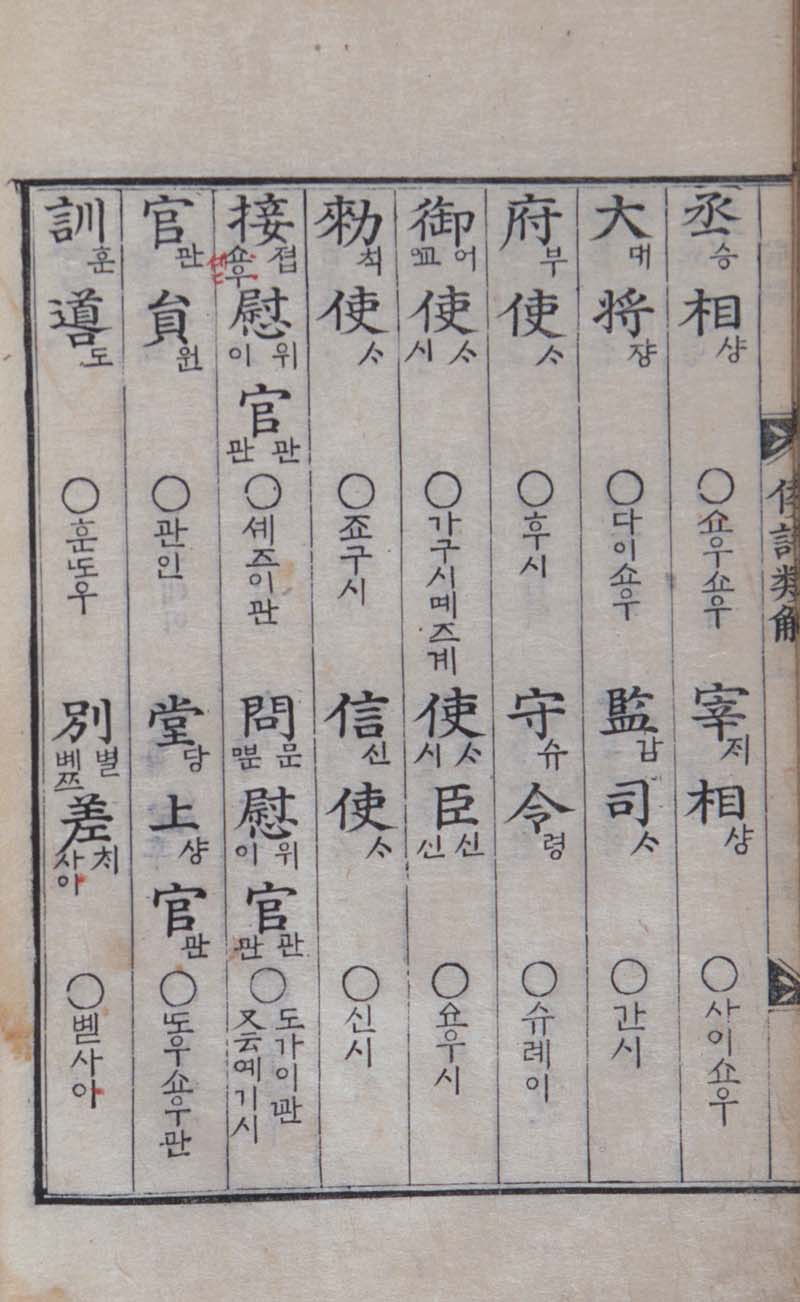 倭語類解
丞승相샹 ○쇼우쇼우 宰ᄌᆡ相샹 ○사이쇼우
大대将쟝 ○다이쇼우 監감司ᄉᆞ ○간시
府부使ᄉᆞ ○후시 守슈令령 ○슈레이
御어使ᄉᆞ시 ○가구시몌즈계 使ᄉᆞ시臣신신
勅척使ᄉᆞ ○죠구시 信신使ᄉᆞ ○신시
接졉쇼우慰위이官관관 ○셰즈이판 問문慰위이官관관 ○도가이ᄶᅪᆫ 又云예기시
官관貟원 ○관인 堂당上샹官관 ○도우쇼우관
訓훈導도 ○훈도우 別별볘쯔差ᄎᆡ사아 ○볟사아